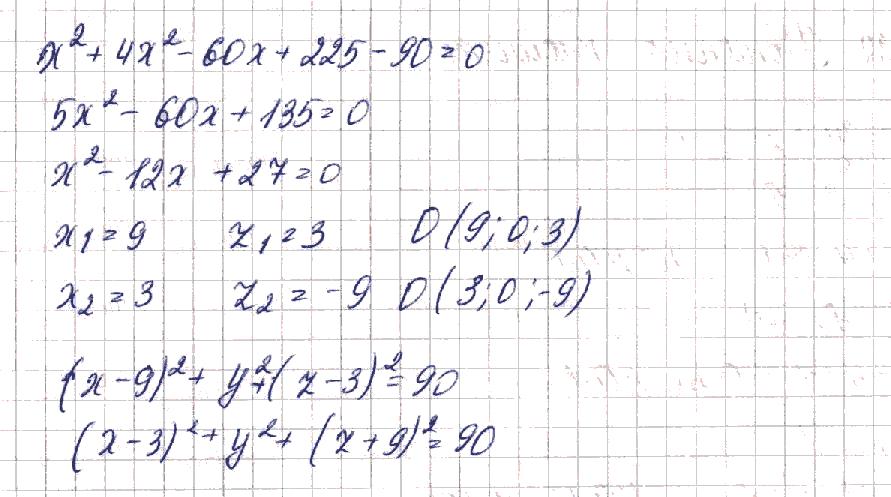 x² + 4x² - 60x + 225 - 90 = 0
5x² - 60x + 135 = 0
x² - 12x + 27 = 0
x₁ = 9 z₁ = 3 O (9; 0; 3)
x₂ = 3 z₂ = -9 O (3; 0; -9)
(x - 9)² + y² + (z - 3)² = 90
(x - 3)² + y² + (z + 9)² = 90